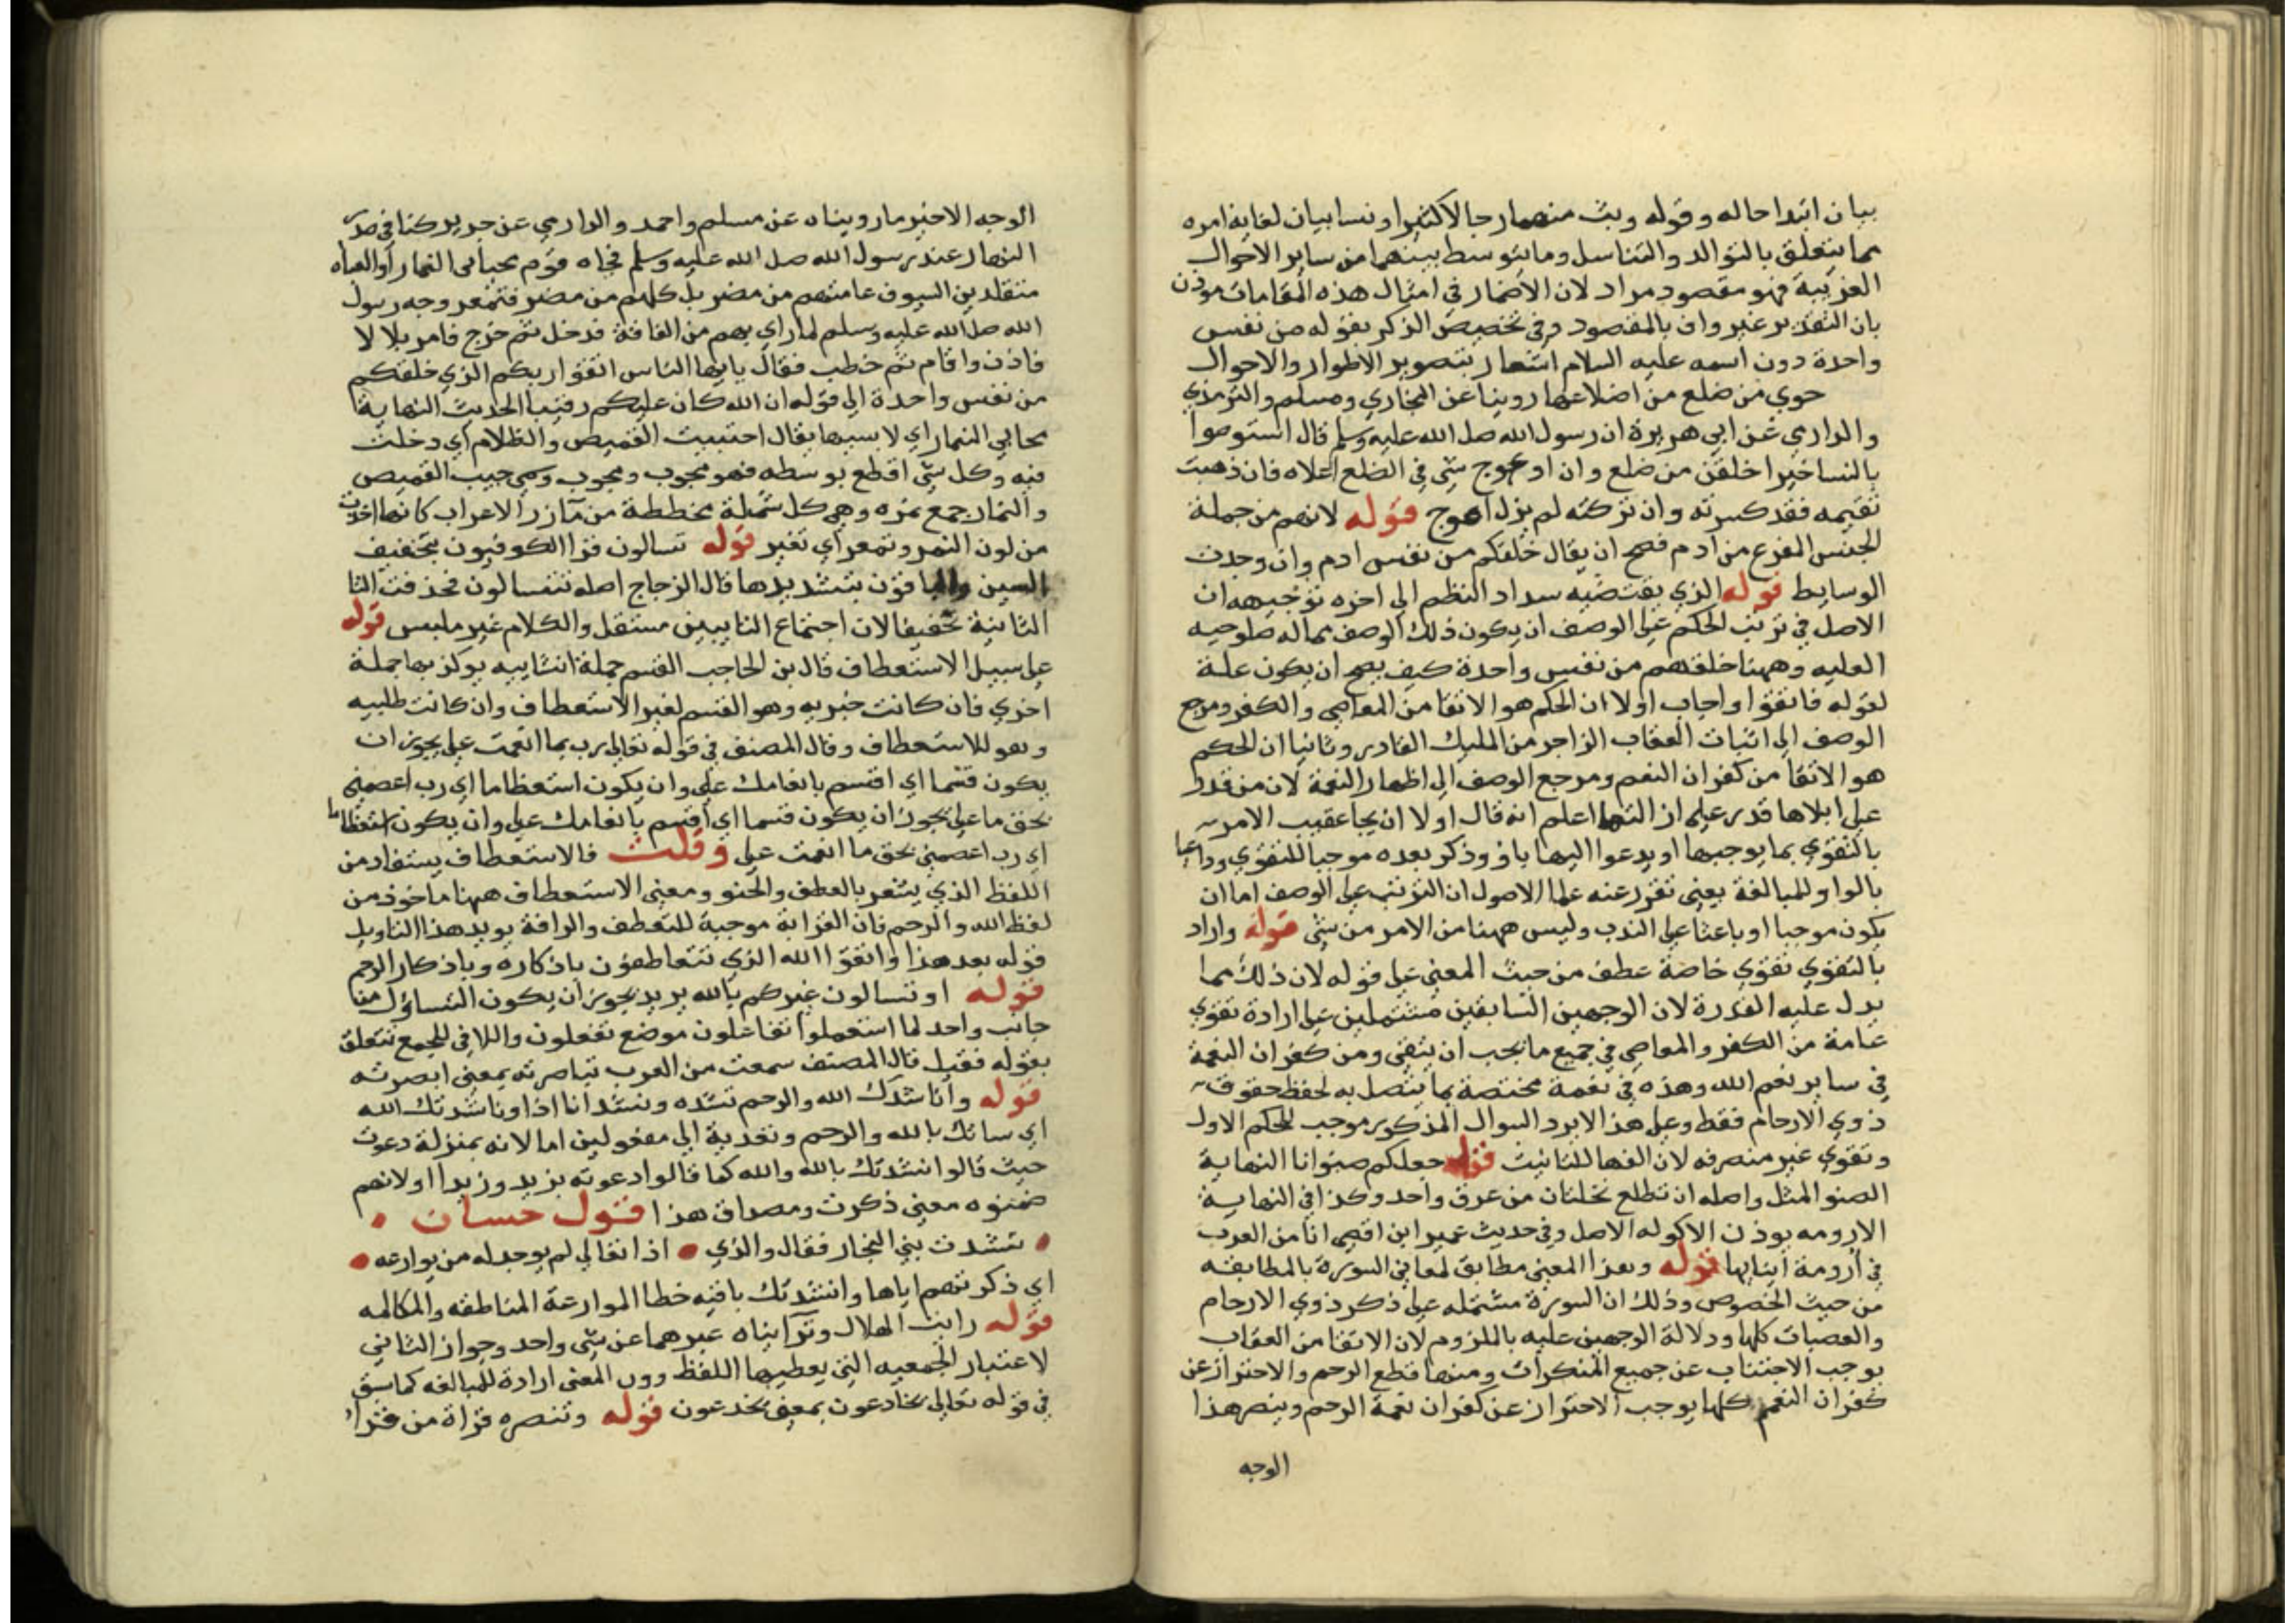 بيان ابتدا حاله وقوله وبث منهما رجالا كثيرا ونسا بيان لغاية امره
مما يتعلق بالتوالد والتناسل وما يتوسط بينهما من ساير الاحوال
الغريبة فهو مقصود مراد لان الاضمار في امثال هذه المقامات موذن
بان التقدير غير واف بالمقصود وفي تخصيص الذكر بقوله من نفس
واحدة دون اسمه عليه السلام اشعار بتصوير الاطوار والاحوال
حوي من ضلع من اضلاعها روينا عن البخاري ومسلم والترمذي
والدارمي عن ابي هريرة ان رسول الله صلى الله عليه وسلم قال استوصوا
بالنسا خيرا خلقن من ضلع وان اعوج شي في الضلع اعلاه فان ذهبت
تقيمه فقد كسرته وان تركته لم يزل اعوج قوله لانهم من جملة
الجنس المفرع من ادم فصح ان يقال خلقكم من نفس ادم وان وجدت
الوسايط قوله الذي يقتضيه سداد النظم الى اخره توجيهه ان
الاصل في ترتب الحكم على الوصف ان يكون ذلك الوصف مما له صلوحيه
العليه وههنا خلقهم من نفس واحدة كيف يصح ان يكون علة
لقوله فاتقوا واجاب اولا ان الحكم هو الاتقا من المعاصي والكفر ومرجع
الوصف الى اثبات العقاب الزاجر من المليك القادر وثانيا ان الحكم
هو الاتقا من كفران النعم ومرجع الوصف الى اظهار النعمة لان من قدر
على ابلاها قدر على ازالتها اعلم انه قال اولا ان يجا عقيب الامر
بالتقوي بما يوجبها او يدعوا اليها باو وذكر بعده موجبا للتقوي وداعيا
بالواو للمبالغة يعني تقرر عند علما الاصول ان الترتب على الوصف اما ان
يكون موجبا او باعثا على الندب وليس ههنا من الامر من شي قوله واراد
بالتقوي تقوي خاصة عطف من حيث المعني على قوله لان ذلك مما
يدل عليه القدرة لان الوجهين السابقين مشتملين على ارادة تقوي
عامة من الكفر والمعاصي في جميع ما يجب ان يتقي ومن كفران النعمة
في ساير نعم الله وهذه في نعمة مختصة بما يتصل به لحفظ حقوق
ذوي الارحام فقط وعلى هذا لا يرد السوال المذكور موجب للحكم الاول
وتقوي غير منصرفه لان الفها للتانيث قوله جعلكم صنوانا النهاية
الصنو المثل واصله ان تطلع نخلتان من عرق واحد وكذا في النهاية
الارومه بوزن الاكوله الاصل وفي حديث عمير ابن اقصى انا من العرب
في ارومة ابنايها قوله وهذا المعني مطابق لمعاني السورة بالمطابقه
من حيث الخصوص وذلك ان السورة مشتمله على ذكر ذوي الارحام
والعصبات كلها ودلالة الوجهين عليه بالملزوم لان الاتقا من العقاب
يوجب الاجتناب عن جميع المنكرات ومنها قطع الرحم والاحتراز عن
كفران النعم كلها يوجب الاحتراز عن كفران نعمة الرحم وينصر هذا
الوجه
الوجه الاخير ما رويناه عن مسلم واحمد والدارمي عن جرير كنا في صدر
النهار عند رسول الله صلى الله عليه وسلم فجاه قوم مجتابي النمار او العباه
متقلدين السيوف عامتهم من مضر بل كلهم من مضر فتمعر وجه رسول
الله صلى الله عليه وسلم لما راي بهم من الفاقة فدخل ثم خرج فامر بلالا
فاذن واقام ثم خطب فقال يايها الناس اتقوا ربكم الذي خلقكم
من نفس واحدة الى قوله ان الله كان عليكم رقيبا الحديث النهاية
مجتابي النمار اي لابسيها يقال اجتبت القميص والظلام اي دخلت
فيه وكل شي اقطع بوسطه فهو مجوب ومجوب وسمي جيب القميص
والنمار جمع نمره وهي كل شملة مخططة من مآزر الاعراب كانها اخذت
من لون النمر وتمعر اي تغير قوله تسالون قرا الكوفيون بتخفيف
السين والباقون بتشديدها قال الزجاج اصله تتسالون فحذفت التا
الثانية تخفيفا لان اجتماع التايين مستقل والكلام غير ملبس قوله
على سبيل الاستعطاف قال بن الحاجب القسم جملة انشاييه يوكد بها جملة
اخري فان كانت خبريه وهو القسم لغير الاستعطاف وان كانت طلبيه
وهو للاستعطاف وقال المصنف في قوله تعالى رب بما انعمت على يجوز ان
يكون قسما اي اقسم بانعامك على وان يكون استعطاما اي رب اعصمني
بحق ما على يجوز ان يكون قسما اي اقسم بانعامك على وان يكون استعطاما
اي رب اعصمني بحق ما انعمت على وقلت فالاستعطاف يستفاد من
اللفظ الذي يشعر بالعطف والحنو ومعني الاستعطاف ههنا ماخوذ من
لفظ الله والرحم فان القرابة موجبة للتعطف والرافة يويد هذا التاويل
قوله بعد هذا واتقوا الله الذي تتعاطفون باذكاره وباذكار الرحم
قوله او تسالون غيركم بالله يريد يجوز ان يكون التساول من
جانب واحد لما استعملوا تفاعلون موضع تفعلون واللا في للجمع تتعلق
بقوله فقيل قال المصنف سمعت من العرب تباصرته بمعني ابصرته
قوله واناشدك الله والرحم نشده ونشدانا اذا وناشدتك الله
اي سالتك بالله والرحم وتعدية الي مفعولين اما لانه بمنزلة دعوت
حيث قالوا نشدتك بالله والله كما قالوا دعوته بزيد وزيدا اولانهم
ضمنوه معني ذكرت ومصداق هذا قول حسان
نشدت بني النجار فقال والذي اذا نقالي لم يوجد له من يوارعه
اي ذكرتهم اياها وانشدتك باقيه خطا الموارعة المناطقه والمكالمه
قوله رايت الهلال وترايناه عبر هما عن شي واحد وجواز الثاني
لاعتبار الجمعيه التي يعطيها اللفظ دون المعني ارادة للمبالغه كما سبق
في قوله تعالى يخادعون بمعني يخدعون قوله وتنصره قراة من قرا